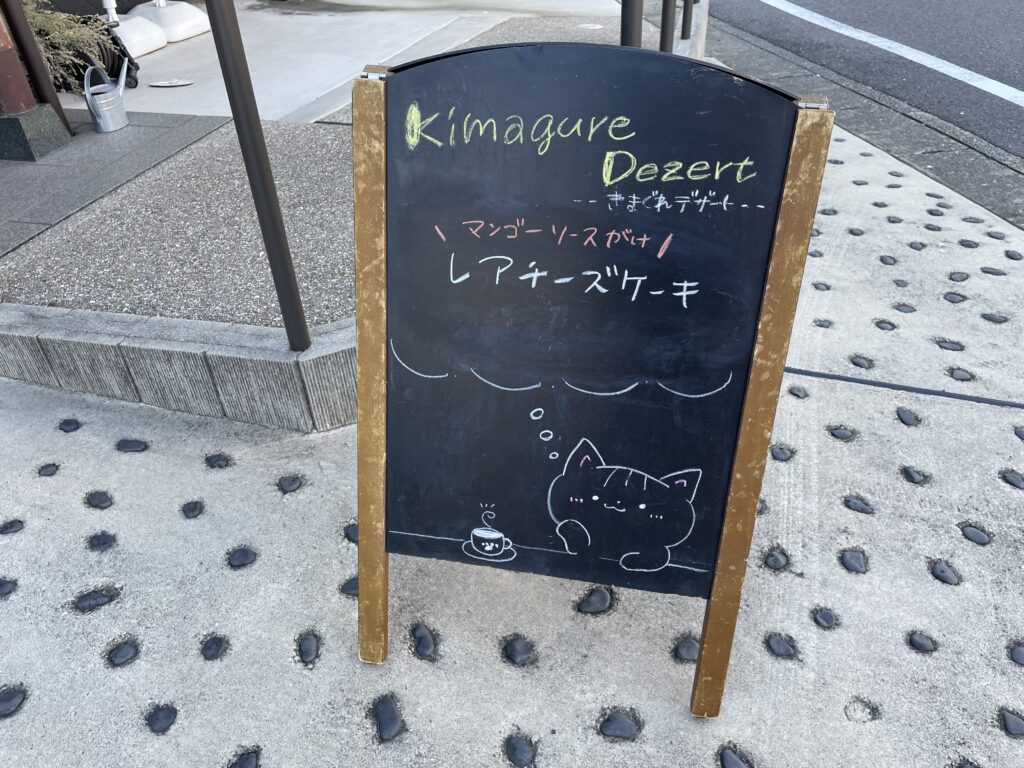 Kimagure
Dezert
--きまぐれデザート--
\ マンゴーソースがけ /
レアチーズケーキ